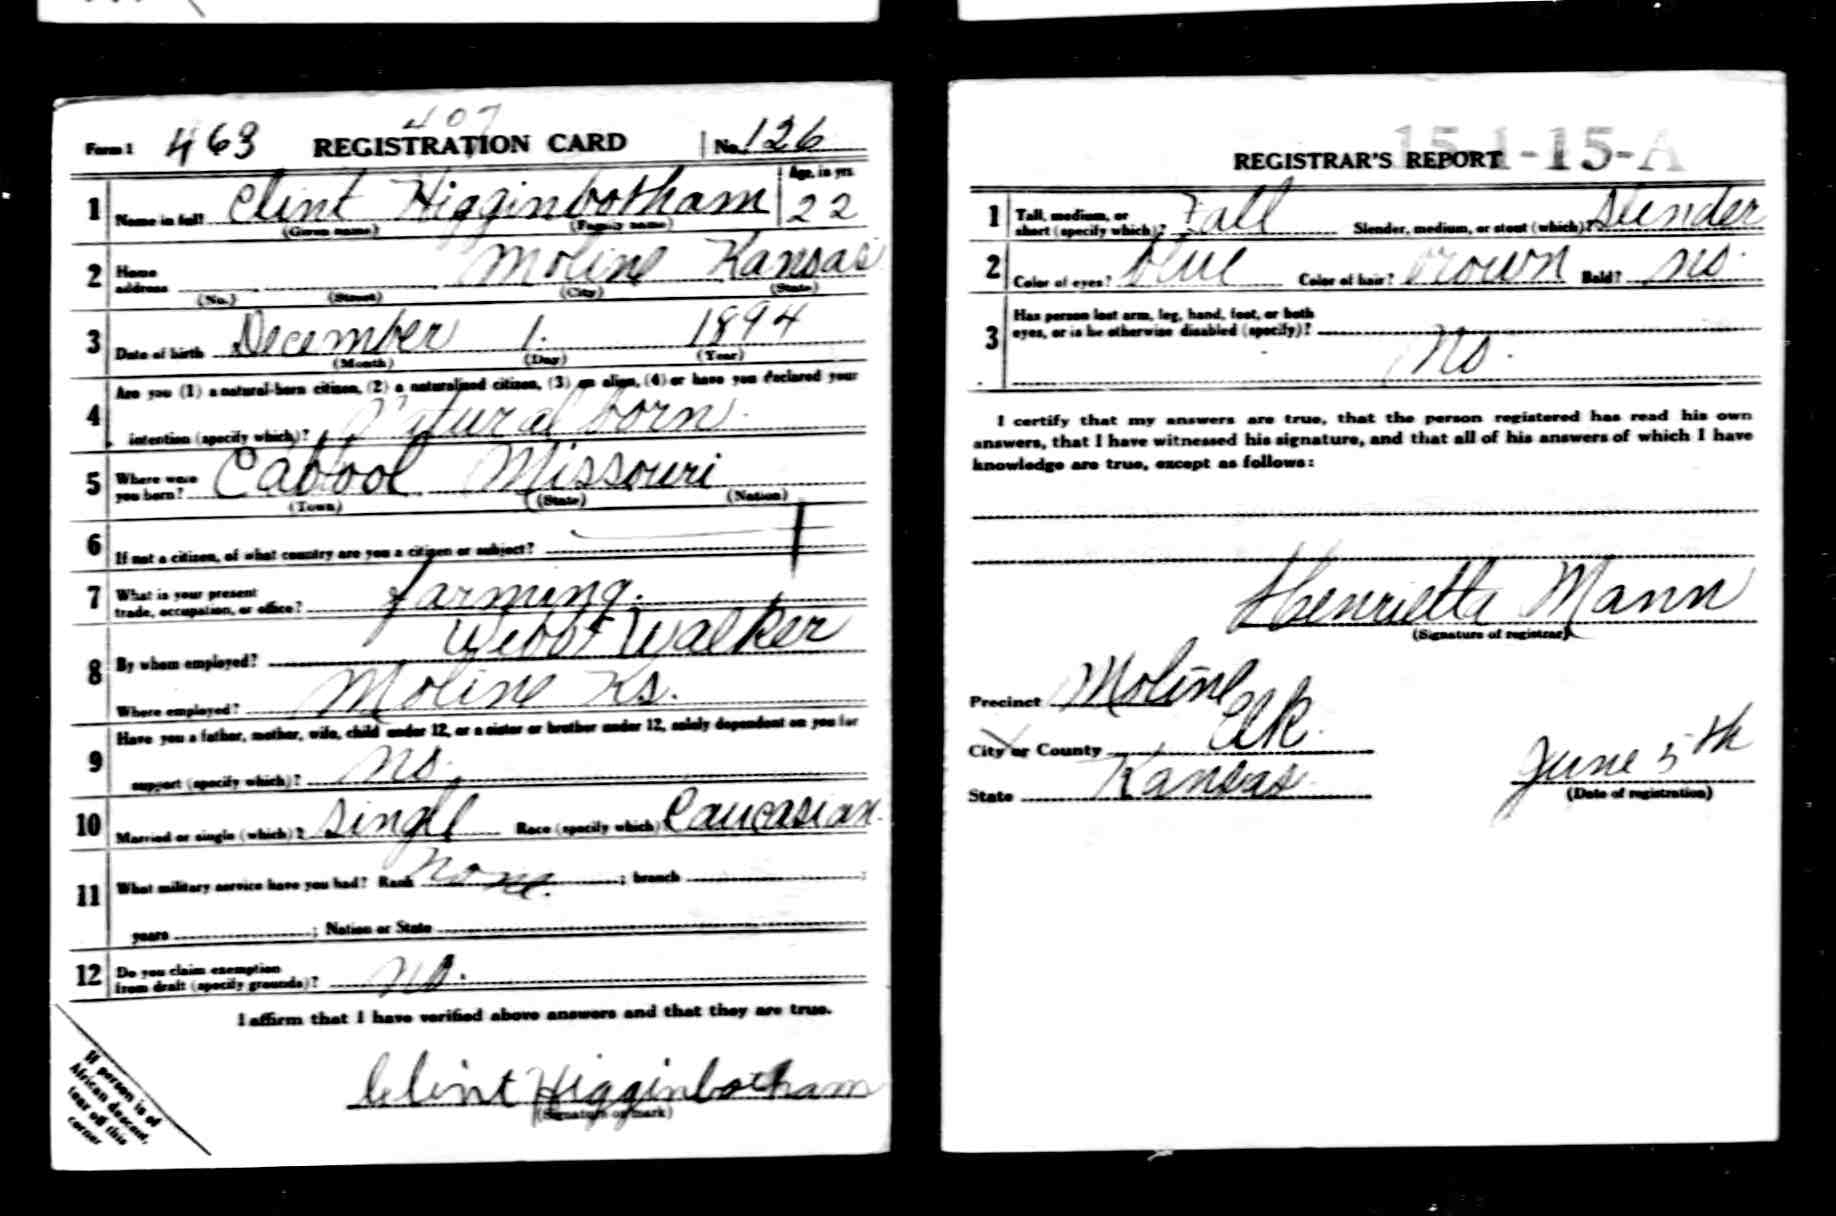 407
Form 1 463 REGISTRATION CARD No. 126
1 Name in full Clint Higginbotham Age, in yrs. 22
(Given name) (Family name)
2 Home address Moline Kansas
(No.) (Street) (City) (State)
3 Date of birth December 1. 1894
(Month) (Day) (Year)
4 Are you (1) a natural-born citizen, (2) a naturalized citizen, (3) an alien, (4) or have you declared your
intention (specify which)? Natural born.
5 Where were you born? Cabool Missouri
(Town) (State) (Nation)
6 If not a citizen, of what country are you a citizen or subject?
7 What is your present trade, occupation, or office? farming.
8 By whom employed? Walker
Where employed? Moline Ks.
9 Have you a father, mother, wife, child under 12, or a sister or brother under 12, solely dependent on you for
support (specify which)? no.
10 Married or single (which)? single Race (specify which) Caucasian.
11 What military service have you had? Rank None. ; branch ;
years ; Nation or State
12 Do you claim exemption from draft (specify grounds)? no.
I affirm that I have verified above answers and that they are true.
Clint Higginbotham
(Signature or mark)
If person is of
African descent,
tear off this
corner
15-1-15-A
REGISTRAR'S REPORT
1 Tall, medium, or short (specify which)? Tall Slender, medium, or stout (which)? Slender
2 Color of eyes? blue Color of hair? brown Bald? no.
3 Has person lost arm, leg, hand, foot, or both
eyes, or is he otherwise disabled (specify)?
No.
I certify that my answers are true, that the person registered has read his own
answers, that I have witnessed his signature, and that all of his answers of which I have
knowledge are true, except as follows:
Henrietta Mann
(Signature of registrar)
Precinct Moline
City or County Elk.
State Kansas June 5th
(Date of registration)